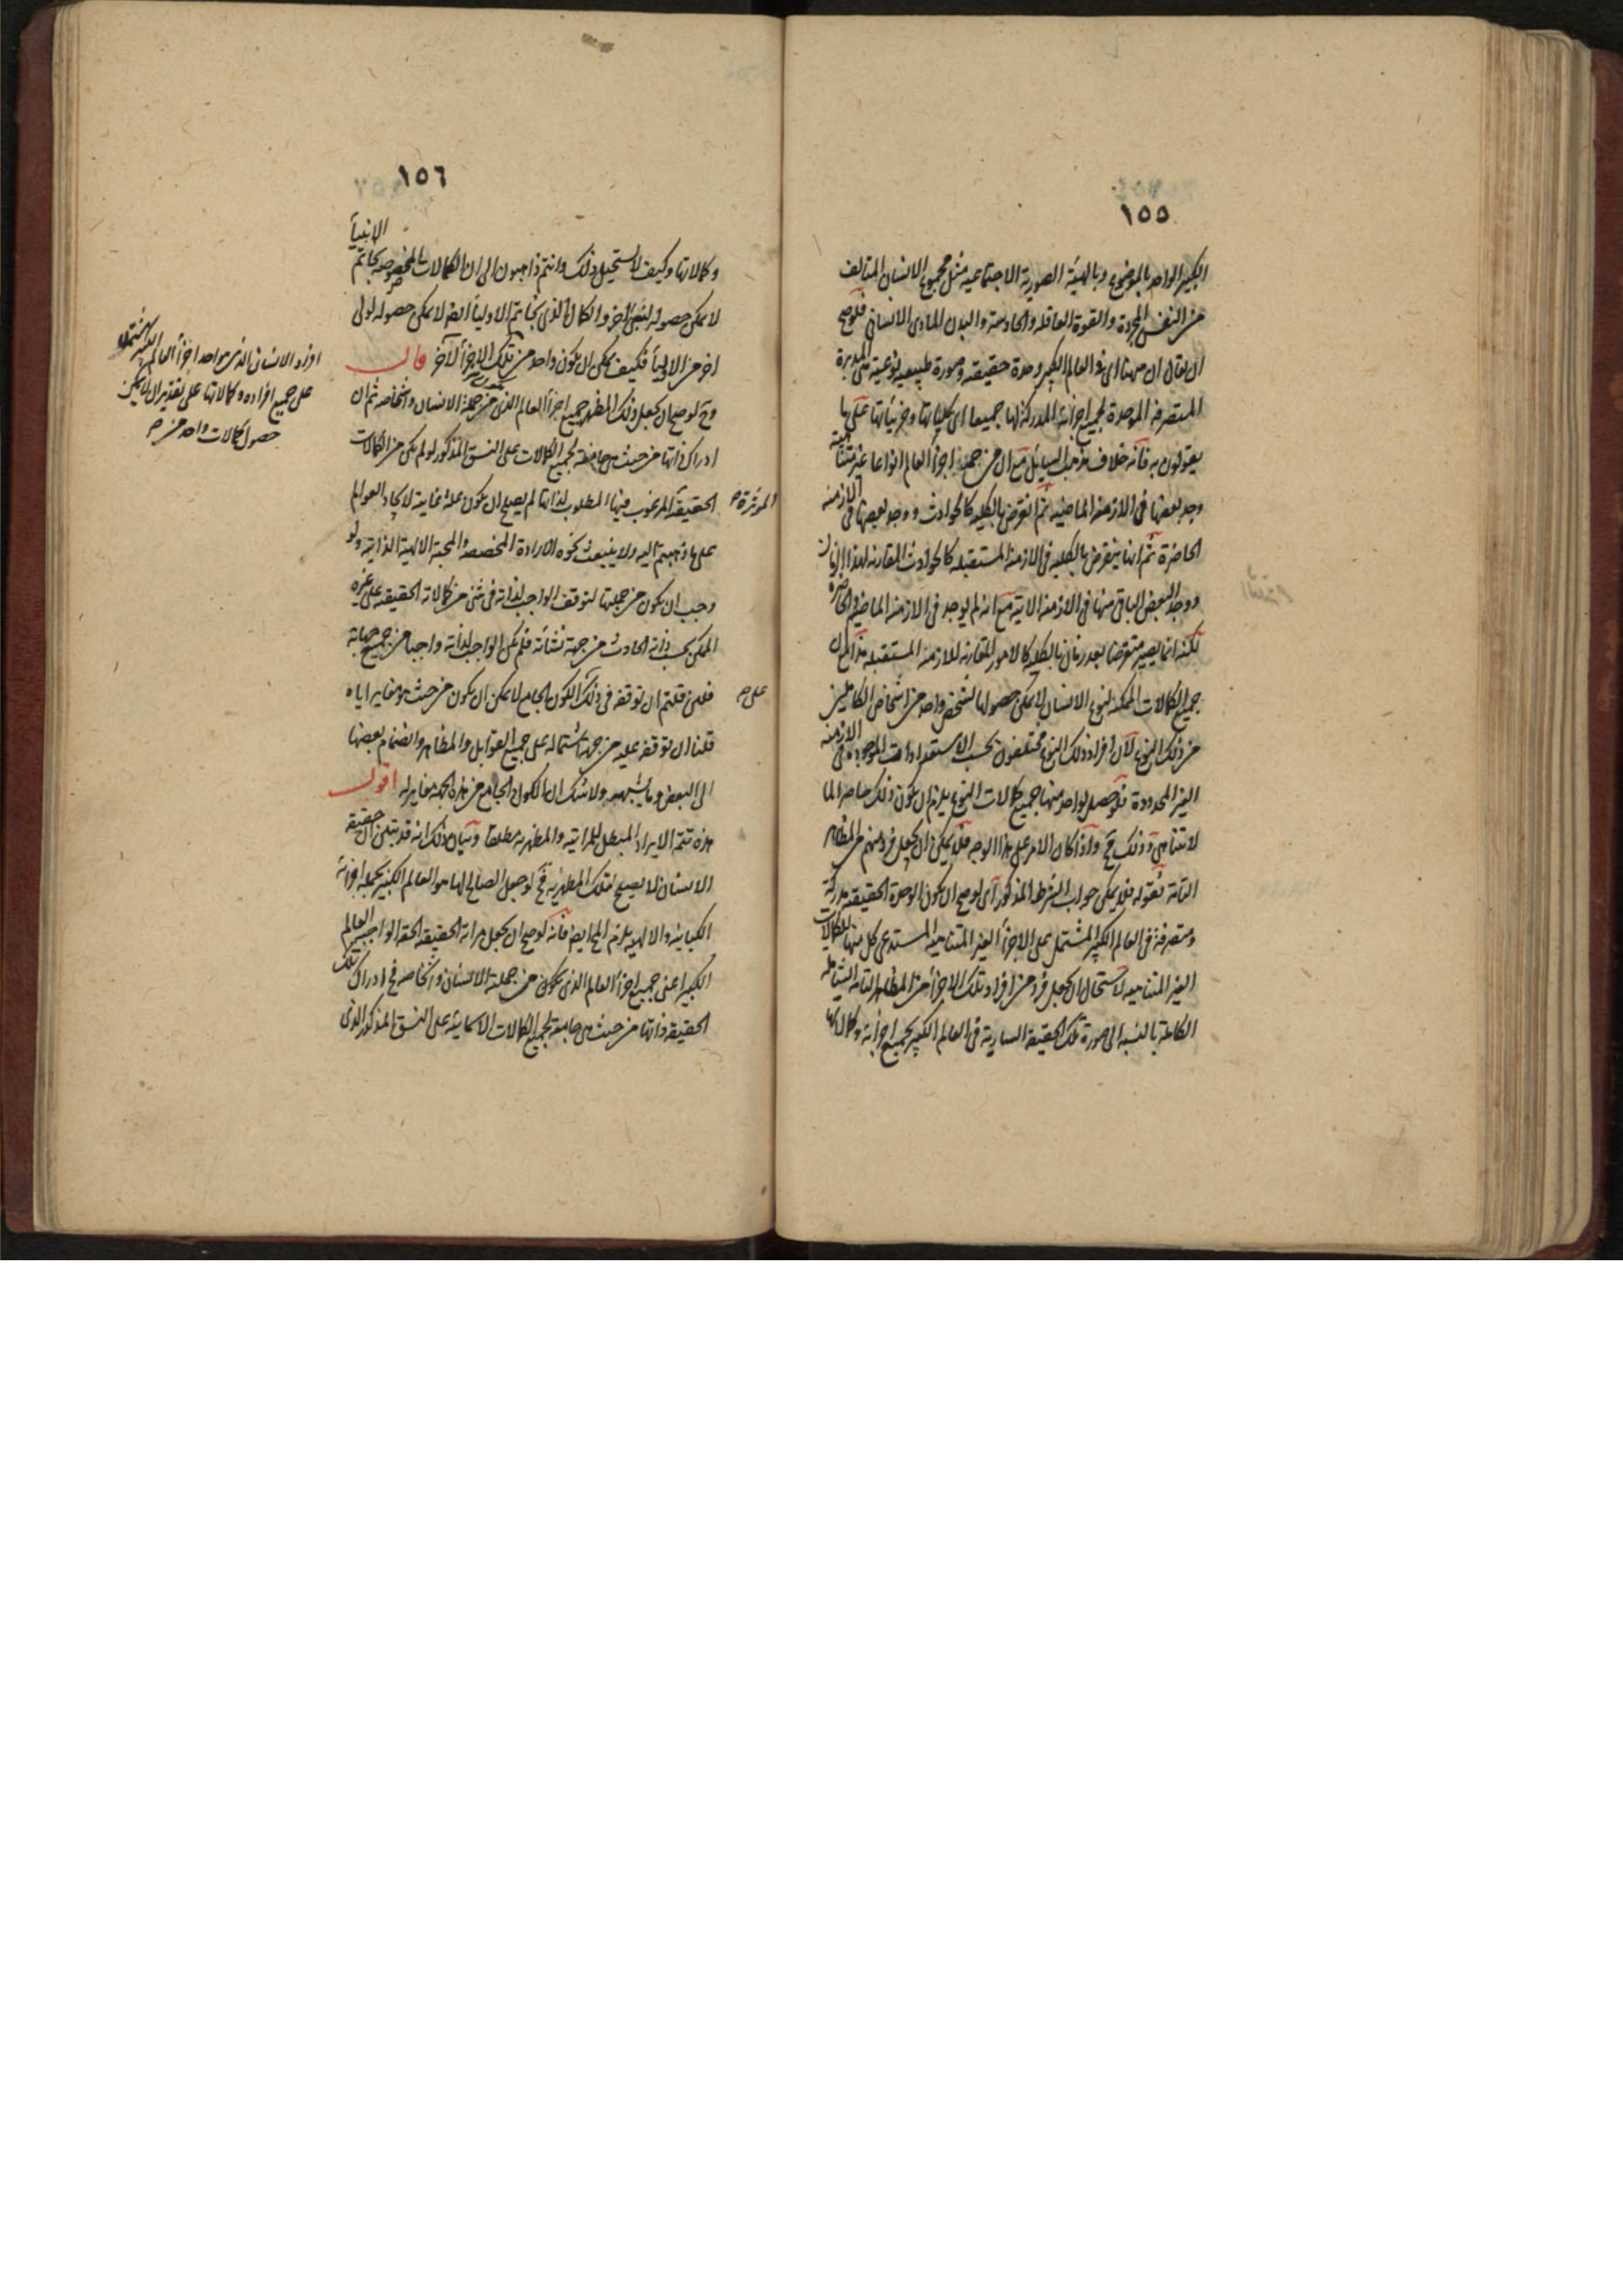 ١٥٥
الكبير الواحد بالموضوع وبالهيئة الصورية الاجتماعية مثل مجموع الانسان المتالف
من النفس المجردة والقوة العاقلة والحادسة والبدن المادى الانسانى فلو صح
ان يقال ان ههنا اى فى العالم الكبير وحدة حقيقة وصورة طبيعية نوعية هى المدبرة
المتصرفة الموحدة لجميع اجزائه المدركة لها جميعا اى كلياتها وجزئياتها على ما
يقولون به فانه خلاف مذهب السايل مع ان من جملة اجزأ العالم انواعا غير متناهية
وجد بعضها فى الازمنة الماضية ثم انقرض بالكلية كالحوادث ووجد بعضها فى الازمنة
الحاضرة ثم انها ينقرض بالكلية فى الازمنة المستقبلة كالحوادث المقارنة لهذا الزمان
ووجد البعض الباقى منها فى الازمنة الاتية مع انه لم يوجد فى الازمنة الماضية والحاضرة
لكنه انما يصير منقرضا بعد زمان بالكلية كالامور المقارنة للازمنة المستقبلة هذا مع ان
جميع الكمالات الممكنة لنوع الانسان لا يمكن حصولها لشخص واحد من اشخاص الكاملين
من ذلك النوع لان افراد ذلك النوع مختلفون بحسب الاستعدادات الموجودة فى الازمنة
الغير المحدودة فلو حصل لواحد منها جميع كمالات النوع يلزم ان يكون ذلك حاصرا لما
لا يتناهى وذلك مح واذا كان الامر على هذا الوجه فلا يمكن ان يجعل فرد منهم من المظاهر
التامة فقوله فلا يمكن جواب الشرط المذكور اى لو صح ان يكون الوحدة الحقيقية مدركة
ومتصرفة فى العالم الكبير المشتمل على الاجزأ الغير المتناهية المستدعى كل منها للكمالات
الغير المتناهية لاستحال ان يجعل فرد من افراد تلك الاجزأ من المظاهر التامة الشاملة
الكاملة بالنسبة الى صورة تلك الحقيقة السارية فى العالم الكبير بجميع اجزائه وكمالاتها
١٥٦
وكمالاتها وكيف لا يستحيل ذلك وانتم ذاهبون الى ان الكمالات المخصوصة بخاتم الانبيأ
لا يمكن حصولها لنبى اخر والكمال الذى بخاتم الاوليأ ايضا لا يمكن حصوله لولى
اخر من الاوليأ فكيف يمكن ان يكون واحد من تلك الاجزأ لآخر قال
وح لو صح ان يجعل ذلك المظهر جميع اجزأ العالم الذى من جملة الانسان واشخاصه ثم ان
ادراك ذاتها من حيث هى جامعة لجميع الكمالات على النسق المذكور لو لم يكن من الكمالات
الحقيقية المرغوب فيها المطلوب لذاتها لم يصلح ان يكون علة غائية لايجاد العوالم
على ما ذهبتم اليه ولا ينبعث نحوه الارادة المخصصة والمحبة الالهية الذاتية ولو
وجب ان يكون من جملتها لتوقف الواجب لذاته فى شئ من كمالاته الحقيقية على غيره
الممكن بحسب ذاته الحادث من جهة نشأته فلم يكن الواجب لذاته واجبا من جميع جهاته
فلئن قلتم ان توقفه فى ذلك الكون الجامع لا يمكن ان يكون من حيث هو مغاير اياه
قلنا ان توقفه عليه من جهة اشتماله على جميع القوابل والمظاهر وانضمام بعضها
الى البعض وما يشبهه ولا شك ان الكون الجامع من هذه الجهة مغاير له اقول
هذه تتمة الايراد المبطل للمراتية والمظهرية مطلقا وبيان ذلك انه قد تبين ان حقيقة
الانسان لا يصلح لتلك المظهرية فح لو جعل الصالح لها هو العالم الكبير بجملة اجزائه
الكيانية والالهية يلزم المح ايضا فانه لو صح ان يجعل مراة الحقيقة الحقة الواجبية العالم
الكبير اعنى جميع اجزأ العالم الذى يكون من جملته الانسان واشخاصه فح ادراك تلك
الحقيقة ذاتها من حيث هى جامعة لجميع الكمالات الاسمائية على النسق المذكور الذى
المؤثرة صح
على صح
افراد الانسان الذى هو احد اجزأ العالم الكبير مشتملا
على جميع افراده وكمالاتها على تقدير ان لا يمكن
حصول كمالات واحد من صح